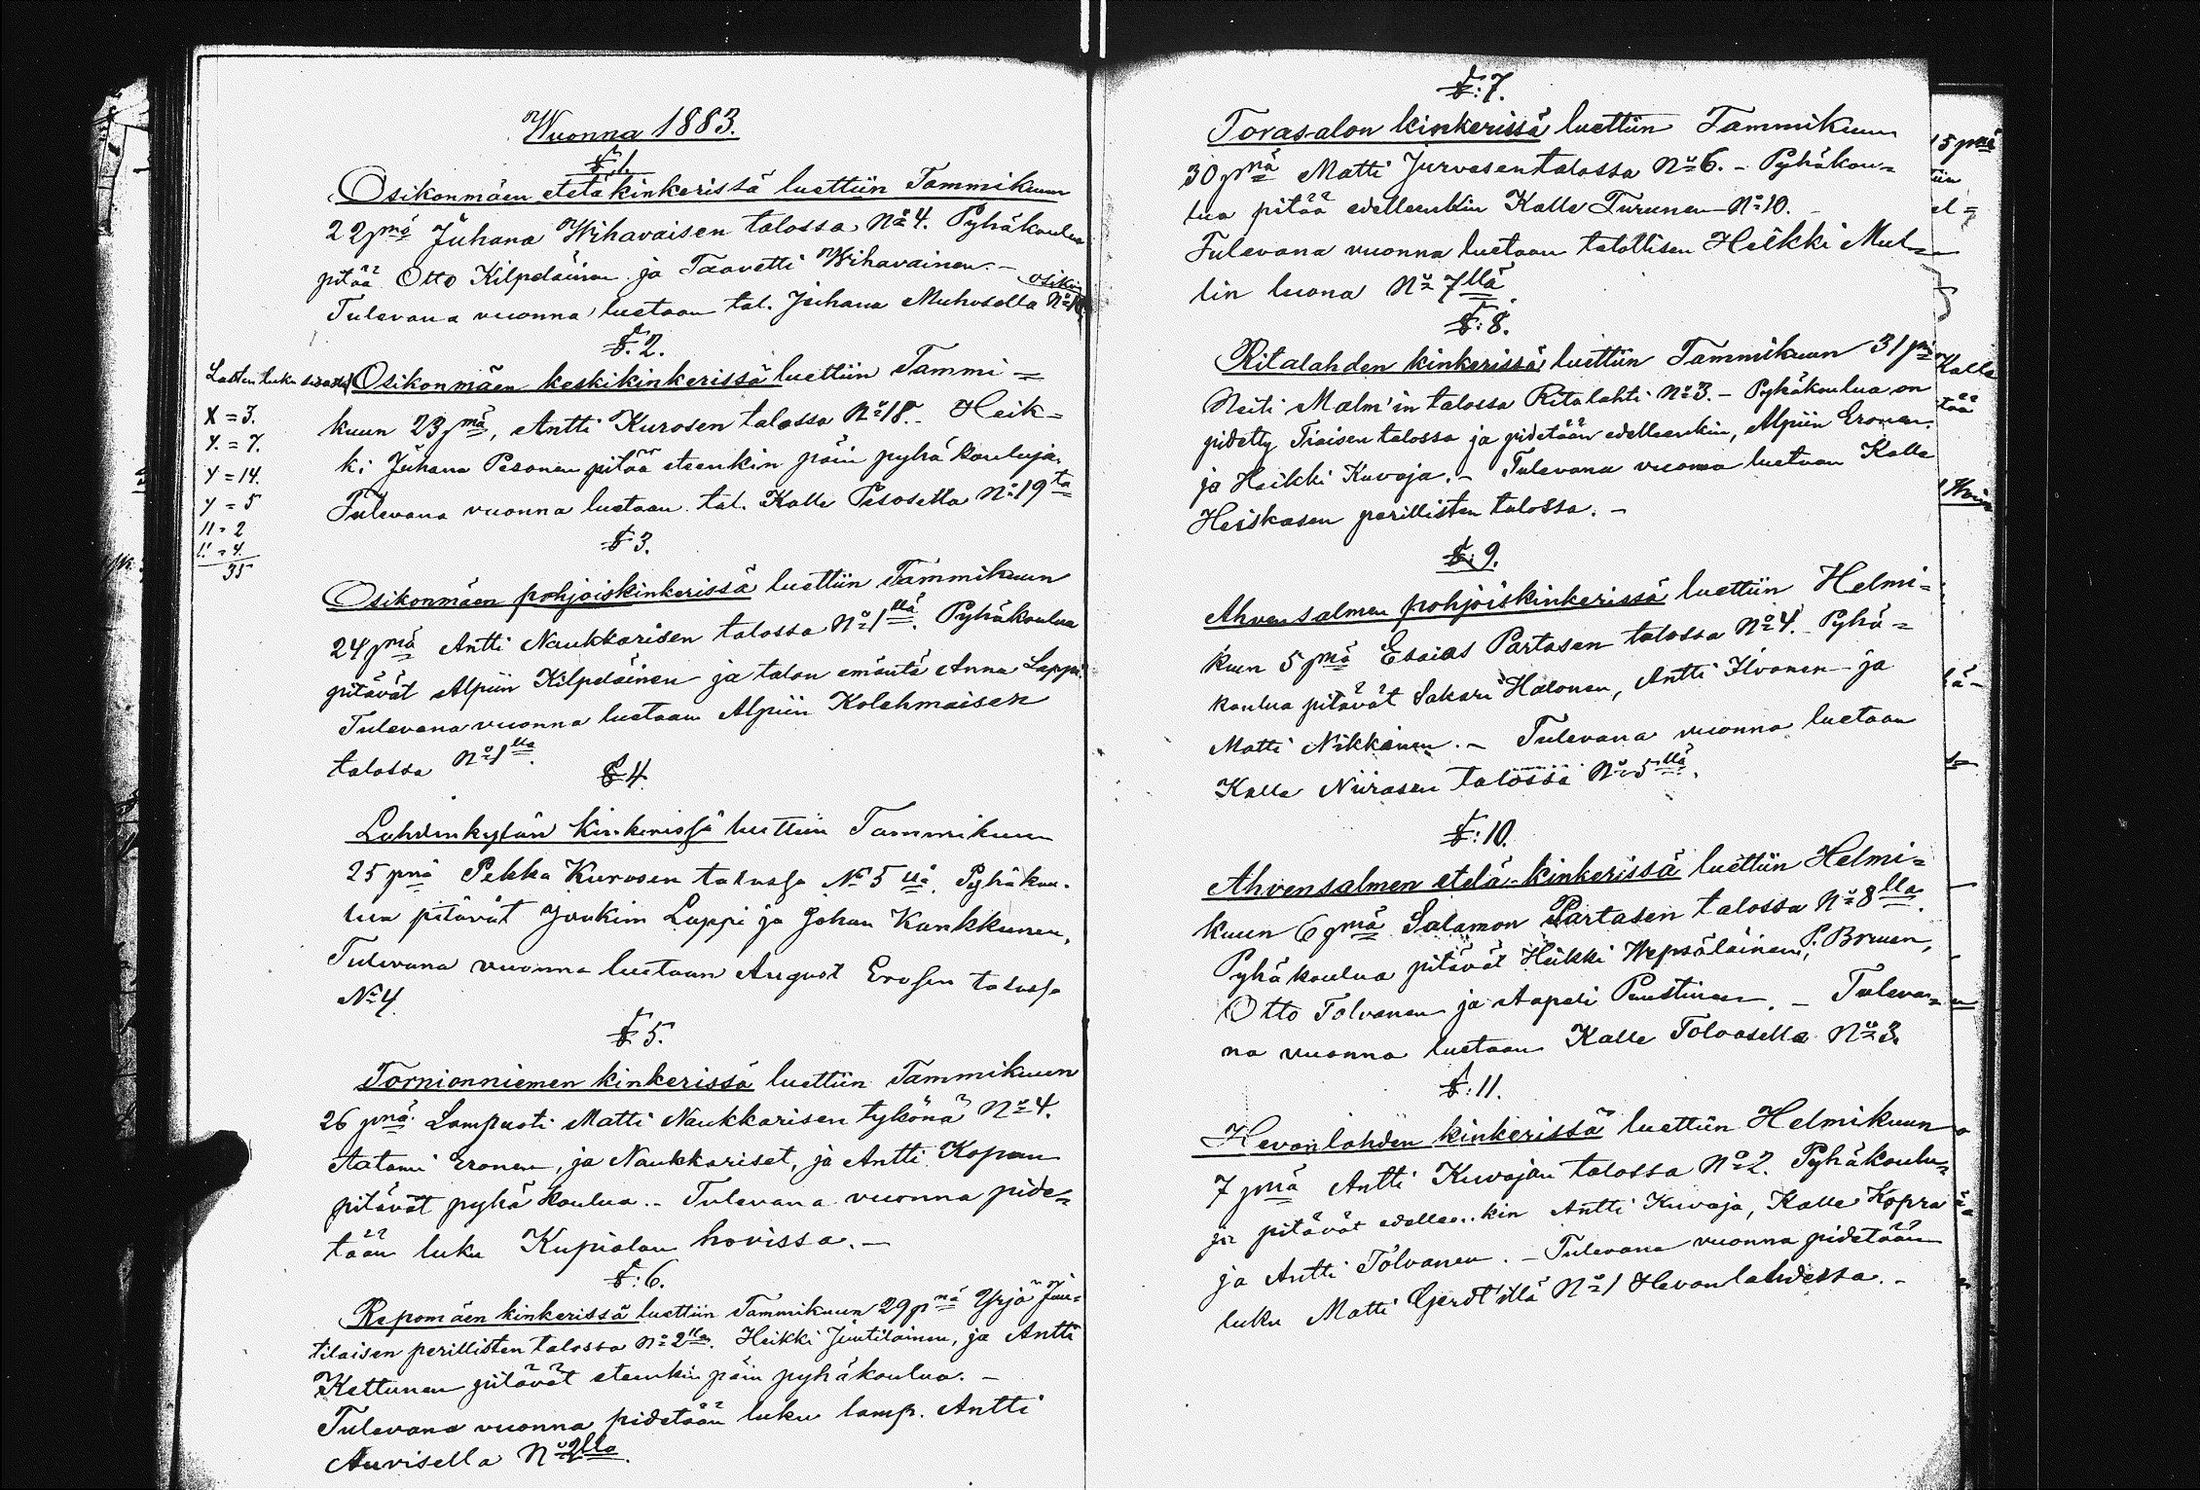 Wuonna 1883.
§ 1.
Osikonmäen etelä kinkerissä luettiin Tammikuun
22 pnä Juhana Wihavaisen talossa No 4. Pyhäkoulua
pitää Otto Kilpeläinen ja Taavetti Wihavainen. –
Tulevana vuonna luetaan tal. Juhana Muhosella
§. 2.
Osikonmäen keskikinkerissä luettiin Tammi=
kuun 23 pnä, Antti Kurosen talossa No 18. Heik=
ki Juhana Pesonen pitää eteenkin päin pyhä kouluja.
Tulevana vuonna luetaan tal. Kalle Pesosella No 19 ta
X = 3.
Y. = 7.
Y = 14.
Y = 5
11 = 2
= 4.
35
§ 3.
Osikonmäen pohjoiskinkerissä luettiin Tammikuun
24 pnä Antti Naukkarisen talossa No 1 llä. Pyhäkoulua
pitävät Alpiin Kilpeläinen ja talon emäntä Anna Lappi.
Tulevana vuonna luetaan Alpiin Kolehmaisen
talossa No 1 lla.
§ 4.
Lahdenkylän kinkerissä luettiin Tammikuun
25 pnä Pekka Kurosen talossa No 5 llä. Pyhäkou-
lua pitävät Joakim Lappi ja Johan Kankkunen.
Tulevana vuonna luetaan August Erosen talossa
No 4
§ 5.
Tornionniemen kinkerissä luettiin Tammikuun
26 pnä. Lampuoti Matti Naukkarisen tykönä No 4.
Aatami Eronen, ja Naukkariset, ja Antti Kopran
pitävät pyhä koulua. – Tulevana vuonna pide=
tään luku Kupialan hovissa. –
§: 6.
Repomäen kinkerissä luettiin Tammikuun 29 pnä Yrjö Juu=
tilaisen perillisten talossa No 2 lla. Heikki Juutilainen, ja Antti
Kettunen pitävät eteenkin päin pyhäkoulua. –
Tulevana vuonna pidetään luku lamp. Antti
Auvisella No 2 lla.
§: 7.
Torasalon kinkerissä luettiin Tammikuun
30 pnä Matti Jurvasen talossa No 6. – Pyhäkou=
lua pitää edelleenkin Kalle Turunen No 10.
Tulevana vuonna luetaan talollisen Heikki Mul=
lin luona No 7 llä
§: 8.
Ritalahden kinkerissä luettiin Tammikuun 31 pnä
Neiti Malm'in talossa Ritalahti No 3. – Pyhäkoulua on
pidetty Tiaisen talossa ja pidetään edelleenkin, Alpiin Eronen
ja Heikki Kuvaja. – Tulevana vuonna luetaan Kalle
Heiskasen perillisten talossa. –
§: 9.
Ahvensalmen pohjoiskinkerissä luettiin Helmi=
kuun 5 pnä Esaias Partasen talossa No 4. Pyhä=
koulua pitävät Sakari Halonen, Antti Ilvonen ja
Matti Nikkanen. – Tulevana vuonna luetaan
Kalle Niirasen talossa No 5 llä.
§: 10.
Ahvensalmen etelä-kinkerissä luettiin Helmi=
kuun 6 pnä Salamon Partasen talossa No 8 lla.
Pyhäkoulua pitävät Heikki Wepsäläinen, P. Bruun,
Otto Tolvanen ja Aapeli Puustinen. – Tuleva=
na vuonna luetaan Kalle Tolvasella No 3.
§: 11.
Hevonlahden kinkerissä luettiin Helmikuun
7 pnä Antti Kuvajan talossa No 2. Pyhäkoulu=
ja pitävät edelleenkin Antti Kuvaja, Kalle Kopra
ja Antti Tolvanen. – Tulevana vuonna pidetään
luku Matti Gerdt'illä No 1 Hevonlahdessa. –